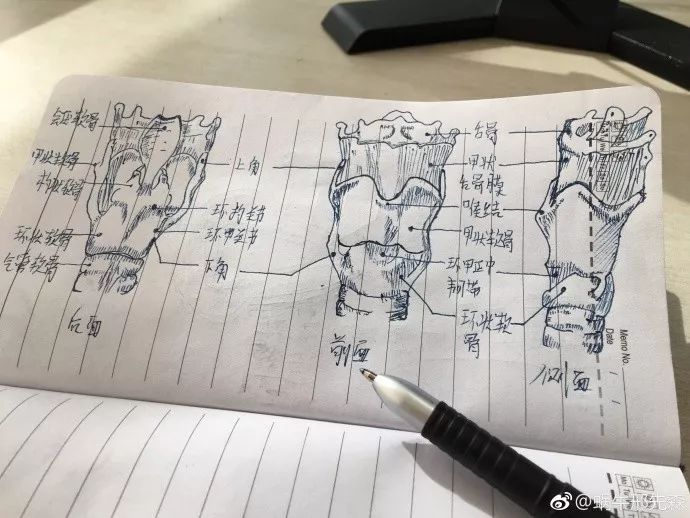 会厌软骨
甲状软骨
杓状软骨
环状软骨
气管软骨
后面
上角
环杓关节
环甲关节
下角
前面
舌骨
甲状
舌骨膜
喉结
甲状软骨
环甲正中
韧带
环状软
骨
侧面
Memo No.
Date
@蜗牛郝先森